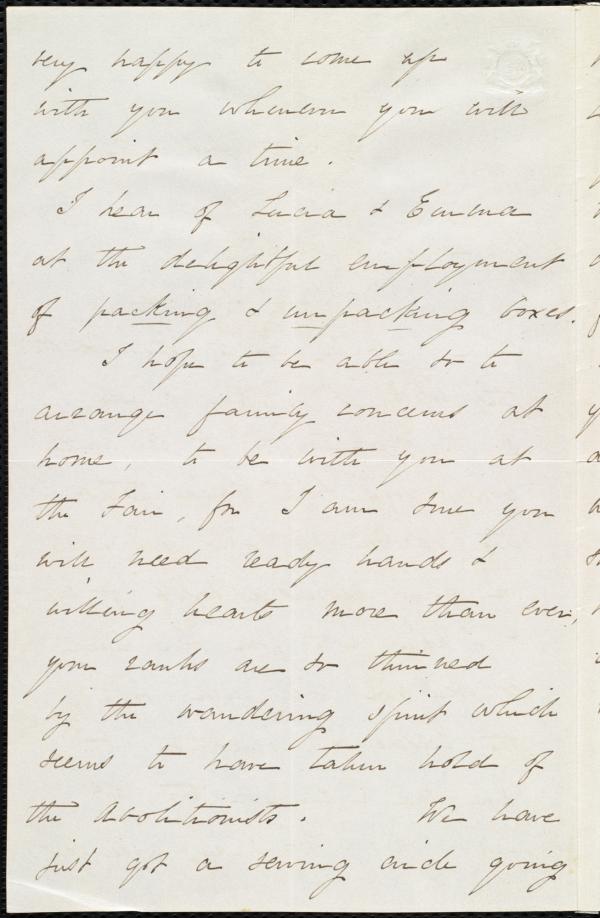 very happy to come up
with you whenever you will
appoint a time.
I hear of Lucia & Emma
at the delightful employment
of packing & unpacking boxes.
I hope to be able so to
arrange family concerns at
home, to be with you at
the Fair, for I am sure you
will need ready hands &
willing hearts more than ever,
your ranks are so thinned
by the wandering spirit which
seems to have taken hold of
the Abolitionists. We have
just got a sewing circle going